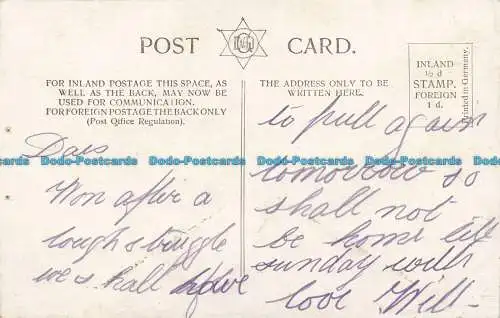 POST CARD.
FOR INLAND POSTAGE THIS SPACE, AS
WELL AS THE BACK, MAY NOW BE
USED FOR COMMUNICATION.
FOR FOREIGN POSTAGE THE BACK ONLY
(Post Office Regulation).
THE ADDRESS ONLY TO BE
WRITTEN HERE.
INLAND
½ d
STAMP.
FOREIGN
1 d.
Printed in Germany.
Won after a
tough struggle
we shall have
to pull again
tomorrow so
shall not
be home till
sunday with
love Will
Dodo-Postcards Dodo-Postcards Dodo-Postcards Dodo-Postcards